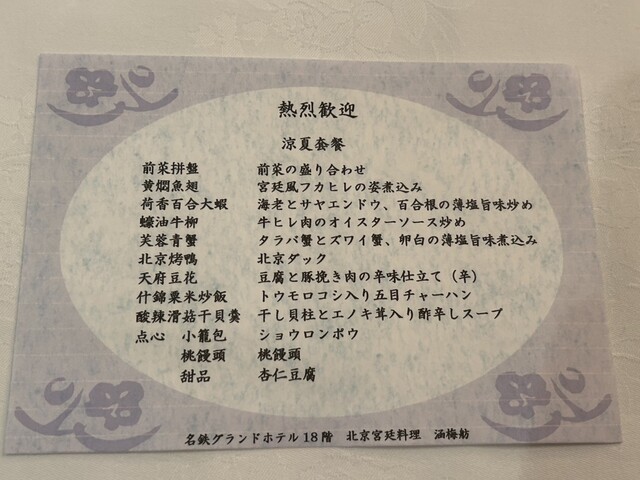 熱烈歓迎
涼夏套餐
前菜拼盤 前菜の盛り合わせ
黄燜魚翅 宮廷風フカヒレの姿煮込み
荷香百合大蝦 海老とサヤエンドウ、百合根の薄塩旨味炒め
蠔油牛柳 牛ヒレ肉のオイスターソース炒め
芙蓉青蟹 タラバ蟹とズワイ蟹、卵白の薄塩旨味煮込み
北京烤鴨 北京ダック
天府豆花 豆腐と豚挽き肉の辛味仕立て（辛）
什錦粟米炒飯 トウモロコシ入り五目チャーハン
酸辣滑菇干貝羹 干し貝柱とエノキ茸入り酢辛しスープ
点心 小籠包 ショウロンポウ
桃饅頭 桃饅頭
甜品 杏仁豆腐
名鉄グランドホテル18階 北京宮廷料理 涵梅舫